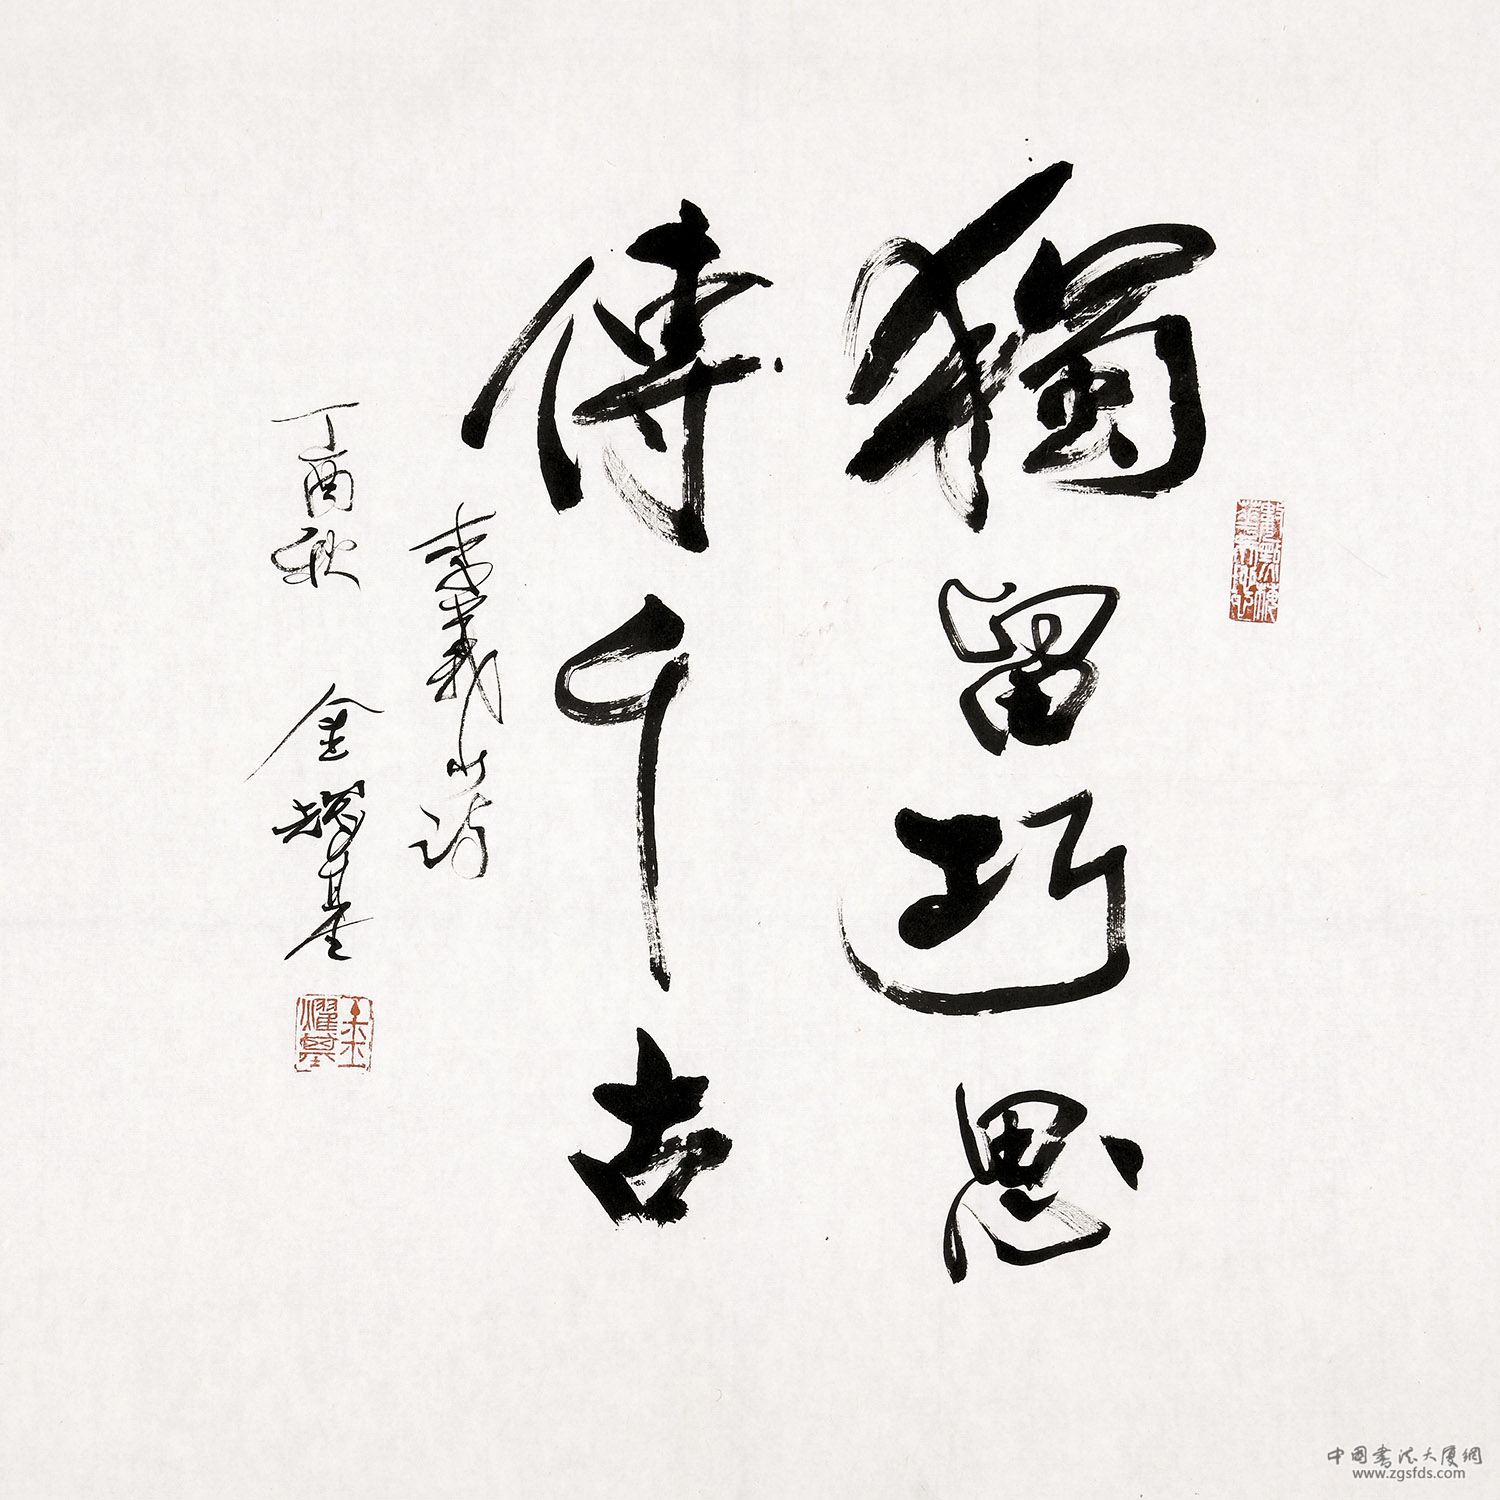 獨留巧思
傳千古
李義山詩
丁酉秋 金耀基
金耀基
中國書法大廈網
www.zgsfds.com